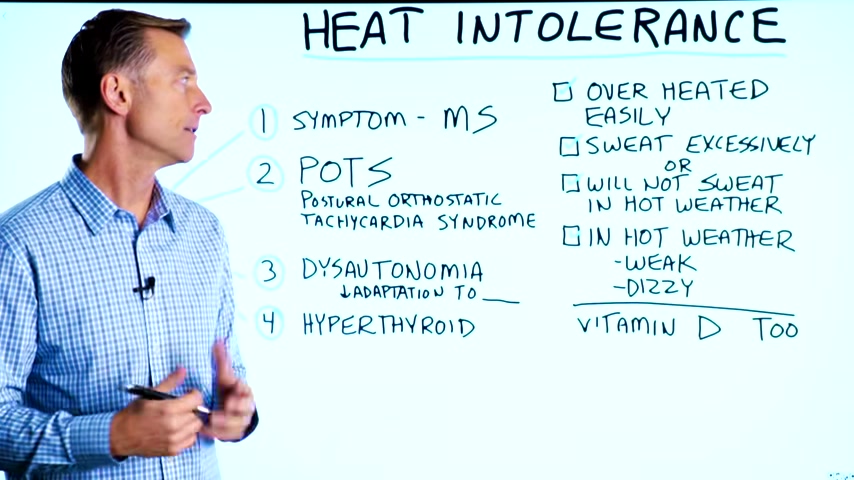 HEAT INTOLERANCE
1 SYMPTOM - MS
2 POTS
POSTURAL ORTHOSTATIC
TACHYCARDIA SYNDROME
3 DYSAUTONOMIA
↓ADAPTATION TO ___
4 HYPERTHYROID
☐ OVER HEATED
EASILY
☐ SWEAT EXCESSIVELY
OR
☐ WILL NOT SWEAT
IN HOT WEATHER
☐ IN HOT WEATHER
-WEAK
-DIZZY
VITAMIN D TOO